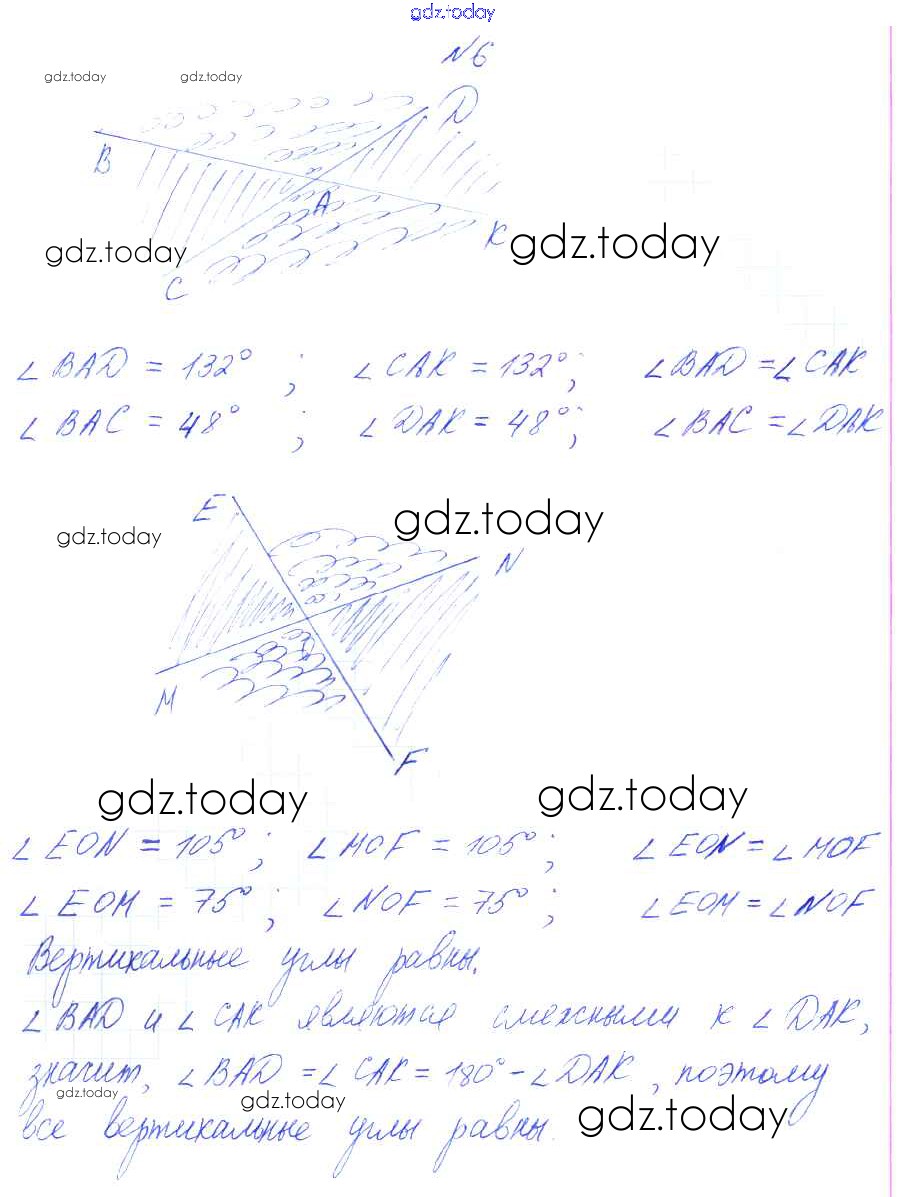 gdz.today
N6
gdz.today gdz.today
D
B
A
K
gdz.today gdz.today
C
∠BAD = 132°; ∠CAK = 132°; ∠BAD = ∠CAK
∠BAC = 48°; ∠DAK = 48°; ∠BAC = ∠DAK
E
gdz.today gdz.today
N
M
F
gdz.today gdz.today
∠EON = 105°; ∠MOF = 105°; ∠EON = ∠MOF
∠EOM = 75°; ∠NOF = 75°; ∠EOM = ∠NOF
Вертикальные углы равны.
∠BAD и ∠CAK являются смежными к ∠DAK,
значит, ∠BAD = ∠CAK = 180° - ∠DAK, поэтому
gdz.today gdz.today gdz.today
все вертикальные углы равны.